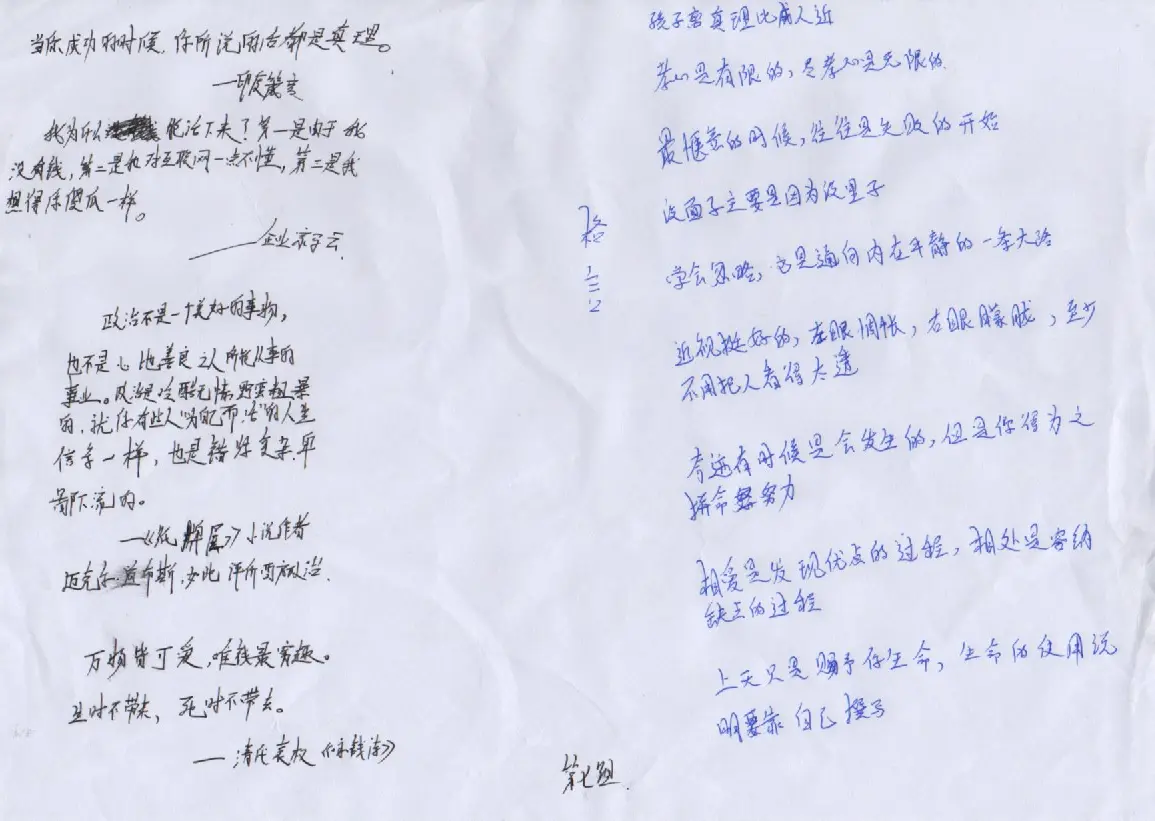 当你成功的时候,你所说的话都是真理。
我为什么能活下来?第一是由于我
没有钱,第二是我对互联网一点不懂,第三是我
想得像傻瓜一样。
政治不是一个美好的事物,
也不是心地善良之人所能从事的
事业。政治是冷酷无情野蛮粗暴
的,就像有些人为自己而活的人生
信条一样,也是错综复杂卑
鄙下流的。
《纸牌屋》小说作者
迈克尔·道布斯,如此评价西方政治.
万物皆可爱,唯钱最有趣。
生时不带来,死时不带去。
—— 清代袁枚《咏钱诗》
孩子离真理比成人近
孝心是有限的,尽孝心是无限的
最惬意的时候,往往是失败的开始
没面子主要是因为没里子
学会忽略,这是通向内在平静的一条大路
近视挺好的,左眼惆怅,右眼朦胧,至少
不用把人看得太透
奇迹有时候是会发生的,但是你得为之
拼命努力
相爱是发现优点的过程,相处是容纳
缺点的过程
上天只是赐予你生命,生命的使用说
明要靠自己撰写
格言
第七组.